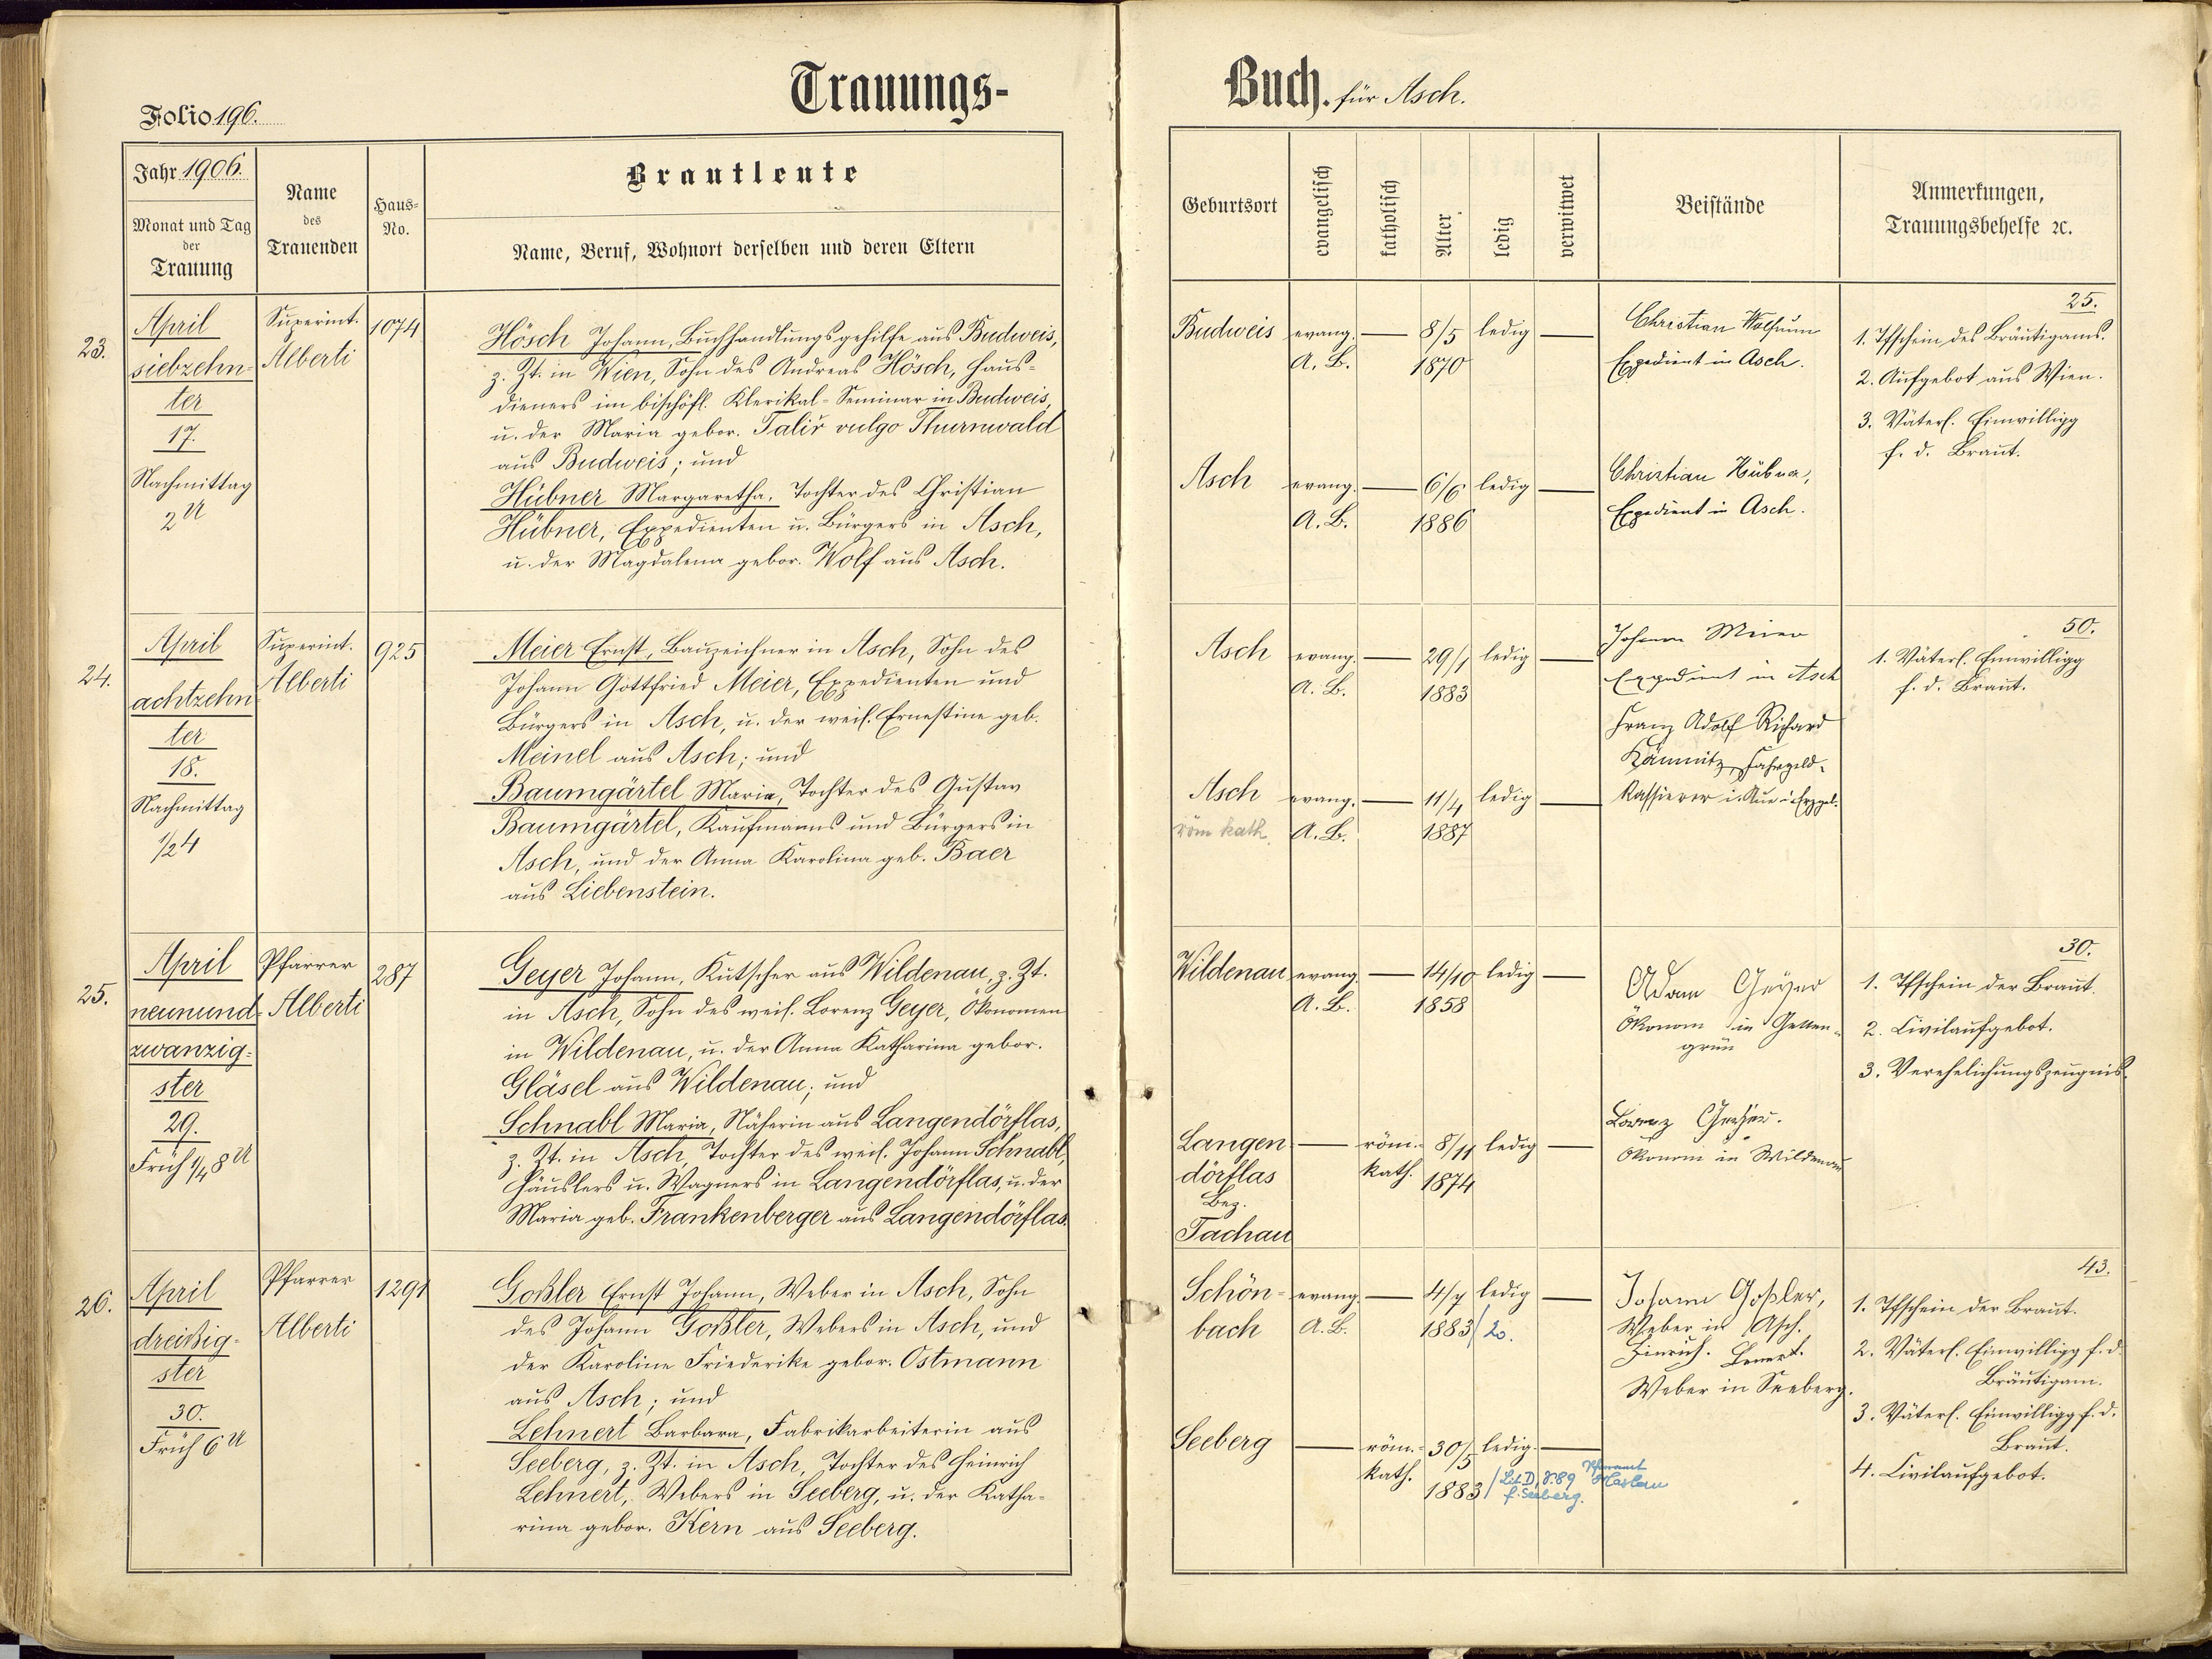 Trauungs-
Folio 196.
Jahr 1906.
Monat und Tag
der
Trauung
Name
des
Trauenden
Haus-
No.
Brautleute
Name, Beruf, Wohnort derselben und deren Eltern
23.
April
siebzehn-
ter
17.
Nachmittag
2 U
Superint.
Alberti
1074
Hösch Johann, Buchhandlungsgehilfe aus Budweis,
z. Zt. in Wien, Sohn des Andreas Hösch, Haus-
dieners im bischöfl. Klerikal-Seminar in Budweis,
u. der Maria gebor. Talíř vulgo Thurnwald
aus Budweis; und
Hübner Margaretha, Tochter des Christian
Hübner, Expedienten u. Bürgers in Asch,
u. der Magdalena gebor. Wolf aus Asch.
24.
April
achtzehn-
ter
18.
Nachmittag
1/2 4
Superint.
Alberti
925
Meier Ernst, Bauzeichner in Asch, Sohn des
Johann Gottfried Meier, Expedienten und
Bürgers in Asch, u. der weil. Ernestine geb.
Meinel aus Asch; und
Baumgärtel Maria, Tochter des Gustav
Baumgärtel, Kaufmanns und Bürgers in
Asch, und der Anna Karolina geb. Baer
aus Liebenstein.
25.
April
neunund-
zwanzig-
ster
29.
Früh 1/4 8 U
Pfarrer
Alberti
287
Geyer Johann, Kutscher aus Wildenau, z. Zt.
in Asch, Sohn des weil. Lorenz Geyer, Ökonomen
in Wildenau, u. der Anna Katharina gebor.
Gläsel aus Wildenau; und
Schnabl Maria, Näherin aus Langendörflas,
z. Zt. in Asch, Tochter des weil. Johann Schnabl,
Häuslers u. Wagners in Langendörflas, u. der
Maria geb. Frankenberger aus Langendörflas.
26.
April
dreißig-
ster
30.
Früh 6 U
Pfarrer
Alberti
1291
Goßler Ernst Johann, Weber in Asch, Sohn
des Johann Goßler, Webers in Asch, und
der Karoline Friederike gebor. Ostmann
aus Asch; und
Lehnert Barbara, Fabrikarbeiterin aus
Seeberg, z. Zt. in Asch, Tochter des Heinrich
Lehnert, Webers in Seeberg, u. der Katha-
rina gebor. Kern aus Seeberg.
Buch. für Asch.
Geburtsort
evangelisch
katholisch
Alter
ledig
verwitwet
Beistände
Anmerkungen,
Trauungsbehelfe ꝛc.
Budweis evang. — 8/5 ledig —
A. B. 1870
Christian Wolfrum
Expedient in Asch.
25.
1. Tfschein des Bräutigams.
2. Aufgebot aus Wien.
3. Väterl. Einwilligg
f. d. Braut.
Asch evang. — 6/6 ledig —
A. B. 1886
Christian Hübner,
Expedient in Asch.
Asch evang. — 29/1 ledig —
A. B. 1883
Johann Meier
Expedient in Asch
Franz Adolf Richard
Kämnitz, Fahrgeld-
Kassierer i. Aue i. Erzgeb.
50.
1. Väterl. Einwilligg
f. d. Braut.
Asch evang. — 11/4 ledig —
röm kath. A. B. 1887
Wildenau evang. — 14/10 ledig —
A. B. 1858
Adam Geyer
Ökonom in Getten-
grün
30.
1. Tfschein der Braut.
2. Civilaufgebot.
3. Verehelichungszeugnis.
Langen- — röm.- 8/11 ledig —
dörflas kath. 1874
Bez.
Tachau
Lorenz Geyer.
Ökonom in Wildenau
Schön- evang. — 4/7 ledig —
bach A. B. 1883
Johann Goßler,
Weber in Asch.
Heinrich. Lenert.
Weber in Seeberg.
43.
1. Tfschein der Braut.
2. Väterl. Einwilligg f. d.
Bräutigam.
3. Väterl. Einwilligg f. d.
Braut.
4. Civilaufgebot.
Seeberg — röm.- 30/5 ledig. —
kath. 1883 / Lit. D, F. 89 Pfarramt
f. Seeberg. Haslau